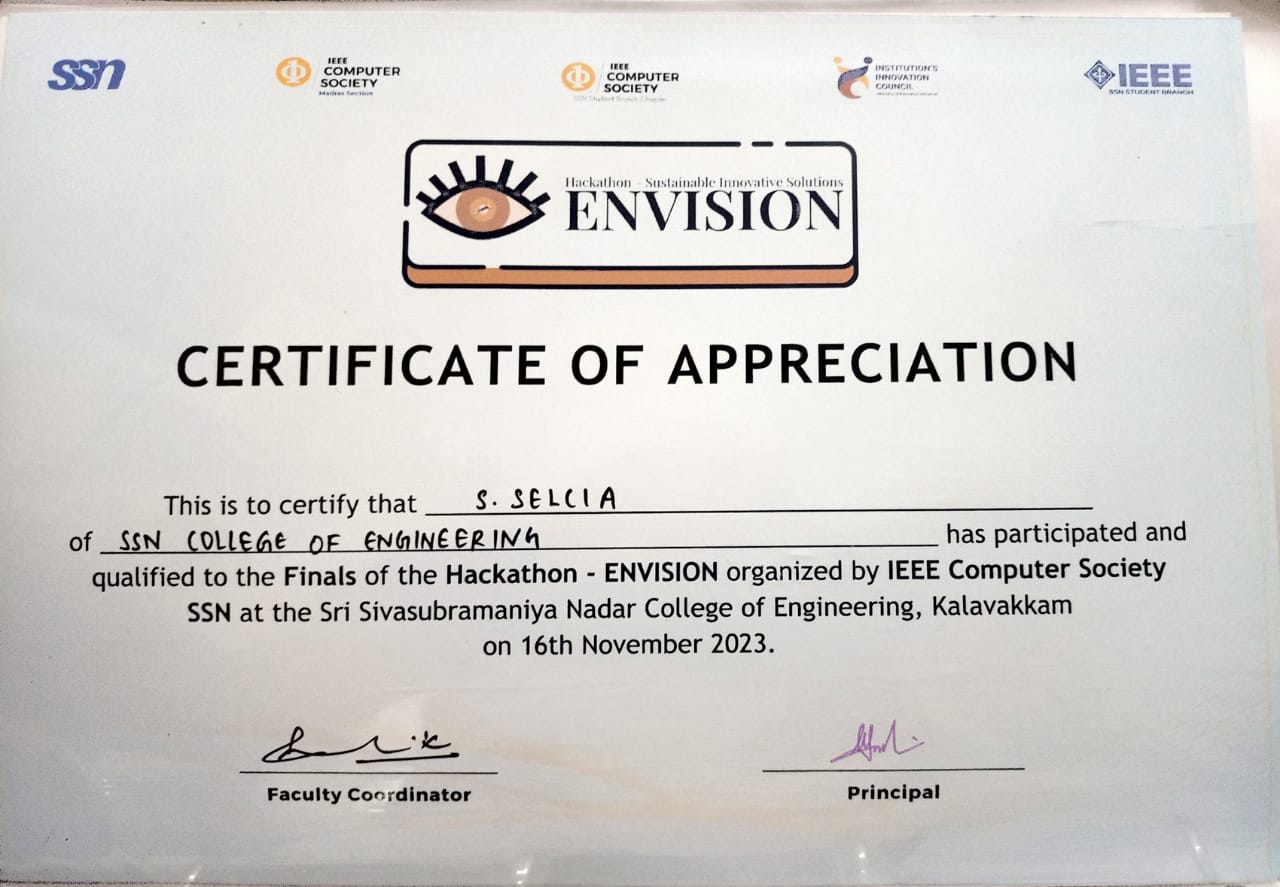 SSN
IEEE
COMPUTER
SOCIETY
Madras Section
IEEE
COMPUTER
SOCIETY
SSN Student Branch Chapter
INSTITUTION'S
INNOVATION
COUNCIL
IEEE
SSN STUDENT BRANCH
Hackathon - Sustainable Innovative Solutions
ENVISION
CERTIFICATE OF APPRECIATION
This is to certify that S. SELCIA
of SSN COLLEGE OF ENGINEERING has participated and
qualified to the Finals of the Hackathon - ENVISION organized by IEEE Computer Society
SSN at the Sri Sivasubramaniya Nadar College of Engineering, Kalavakkam
on 16th November 2023.
Faculty Coordinator
Principal